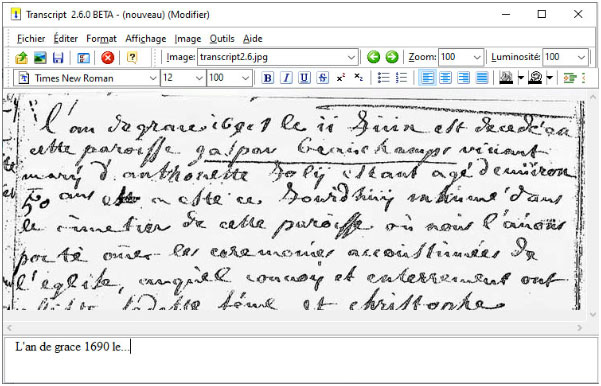 Transcript 2.6.0 BETA - (nouveau) (Modifier)
Fichier Éditer Format Affichage Image Outils Aide
Image: transcript2.6.jpg Zoom: 100 Luminosité: 100
Times New Roman 12 100 B I U S x² x₂
l'an de grace le 11 Juin est decede en
cette paroisse gaspar vivant
mary d'anthonette Joly estant agé denviron
50 ans a este ce Jourdhuy inhumé dans
le cimetier de cette paroisse où nous l'avons
porté avec les ceremonies accoustumées de
l'eglise, auquel convoy et enterrement ont
et christophe
L'an de grace 1690 le...